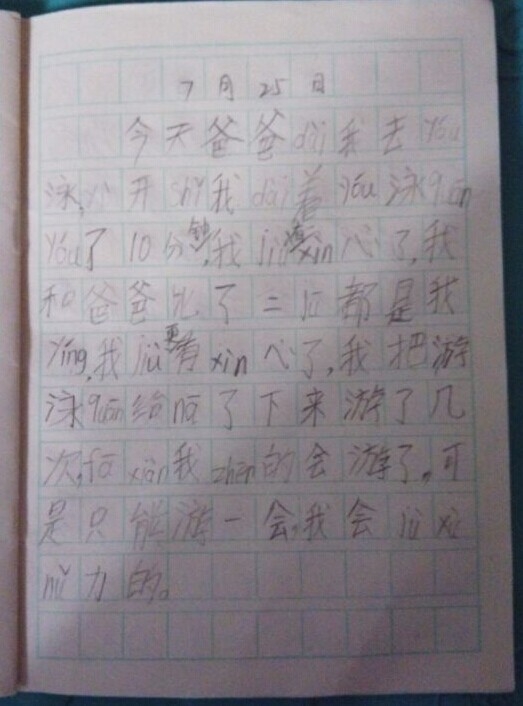 7月25日
今天爸爸dài我去yóu
泳,刚开shǐ我dài着yóu泳quān
yóu了10分钟,我jiù有xìn心了,我
和爸爸比了三lū都是我
yíng,我jiù更有xìn心了,我把游
泳quān给nā了下来游了几
次,fā xiàn我zhēn的会游了,可
是只能游一会,我会jì xù
nǔ力的。